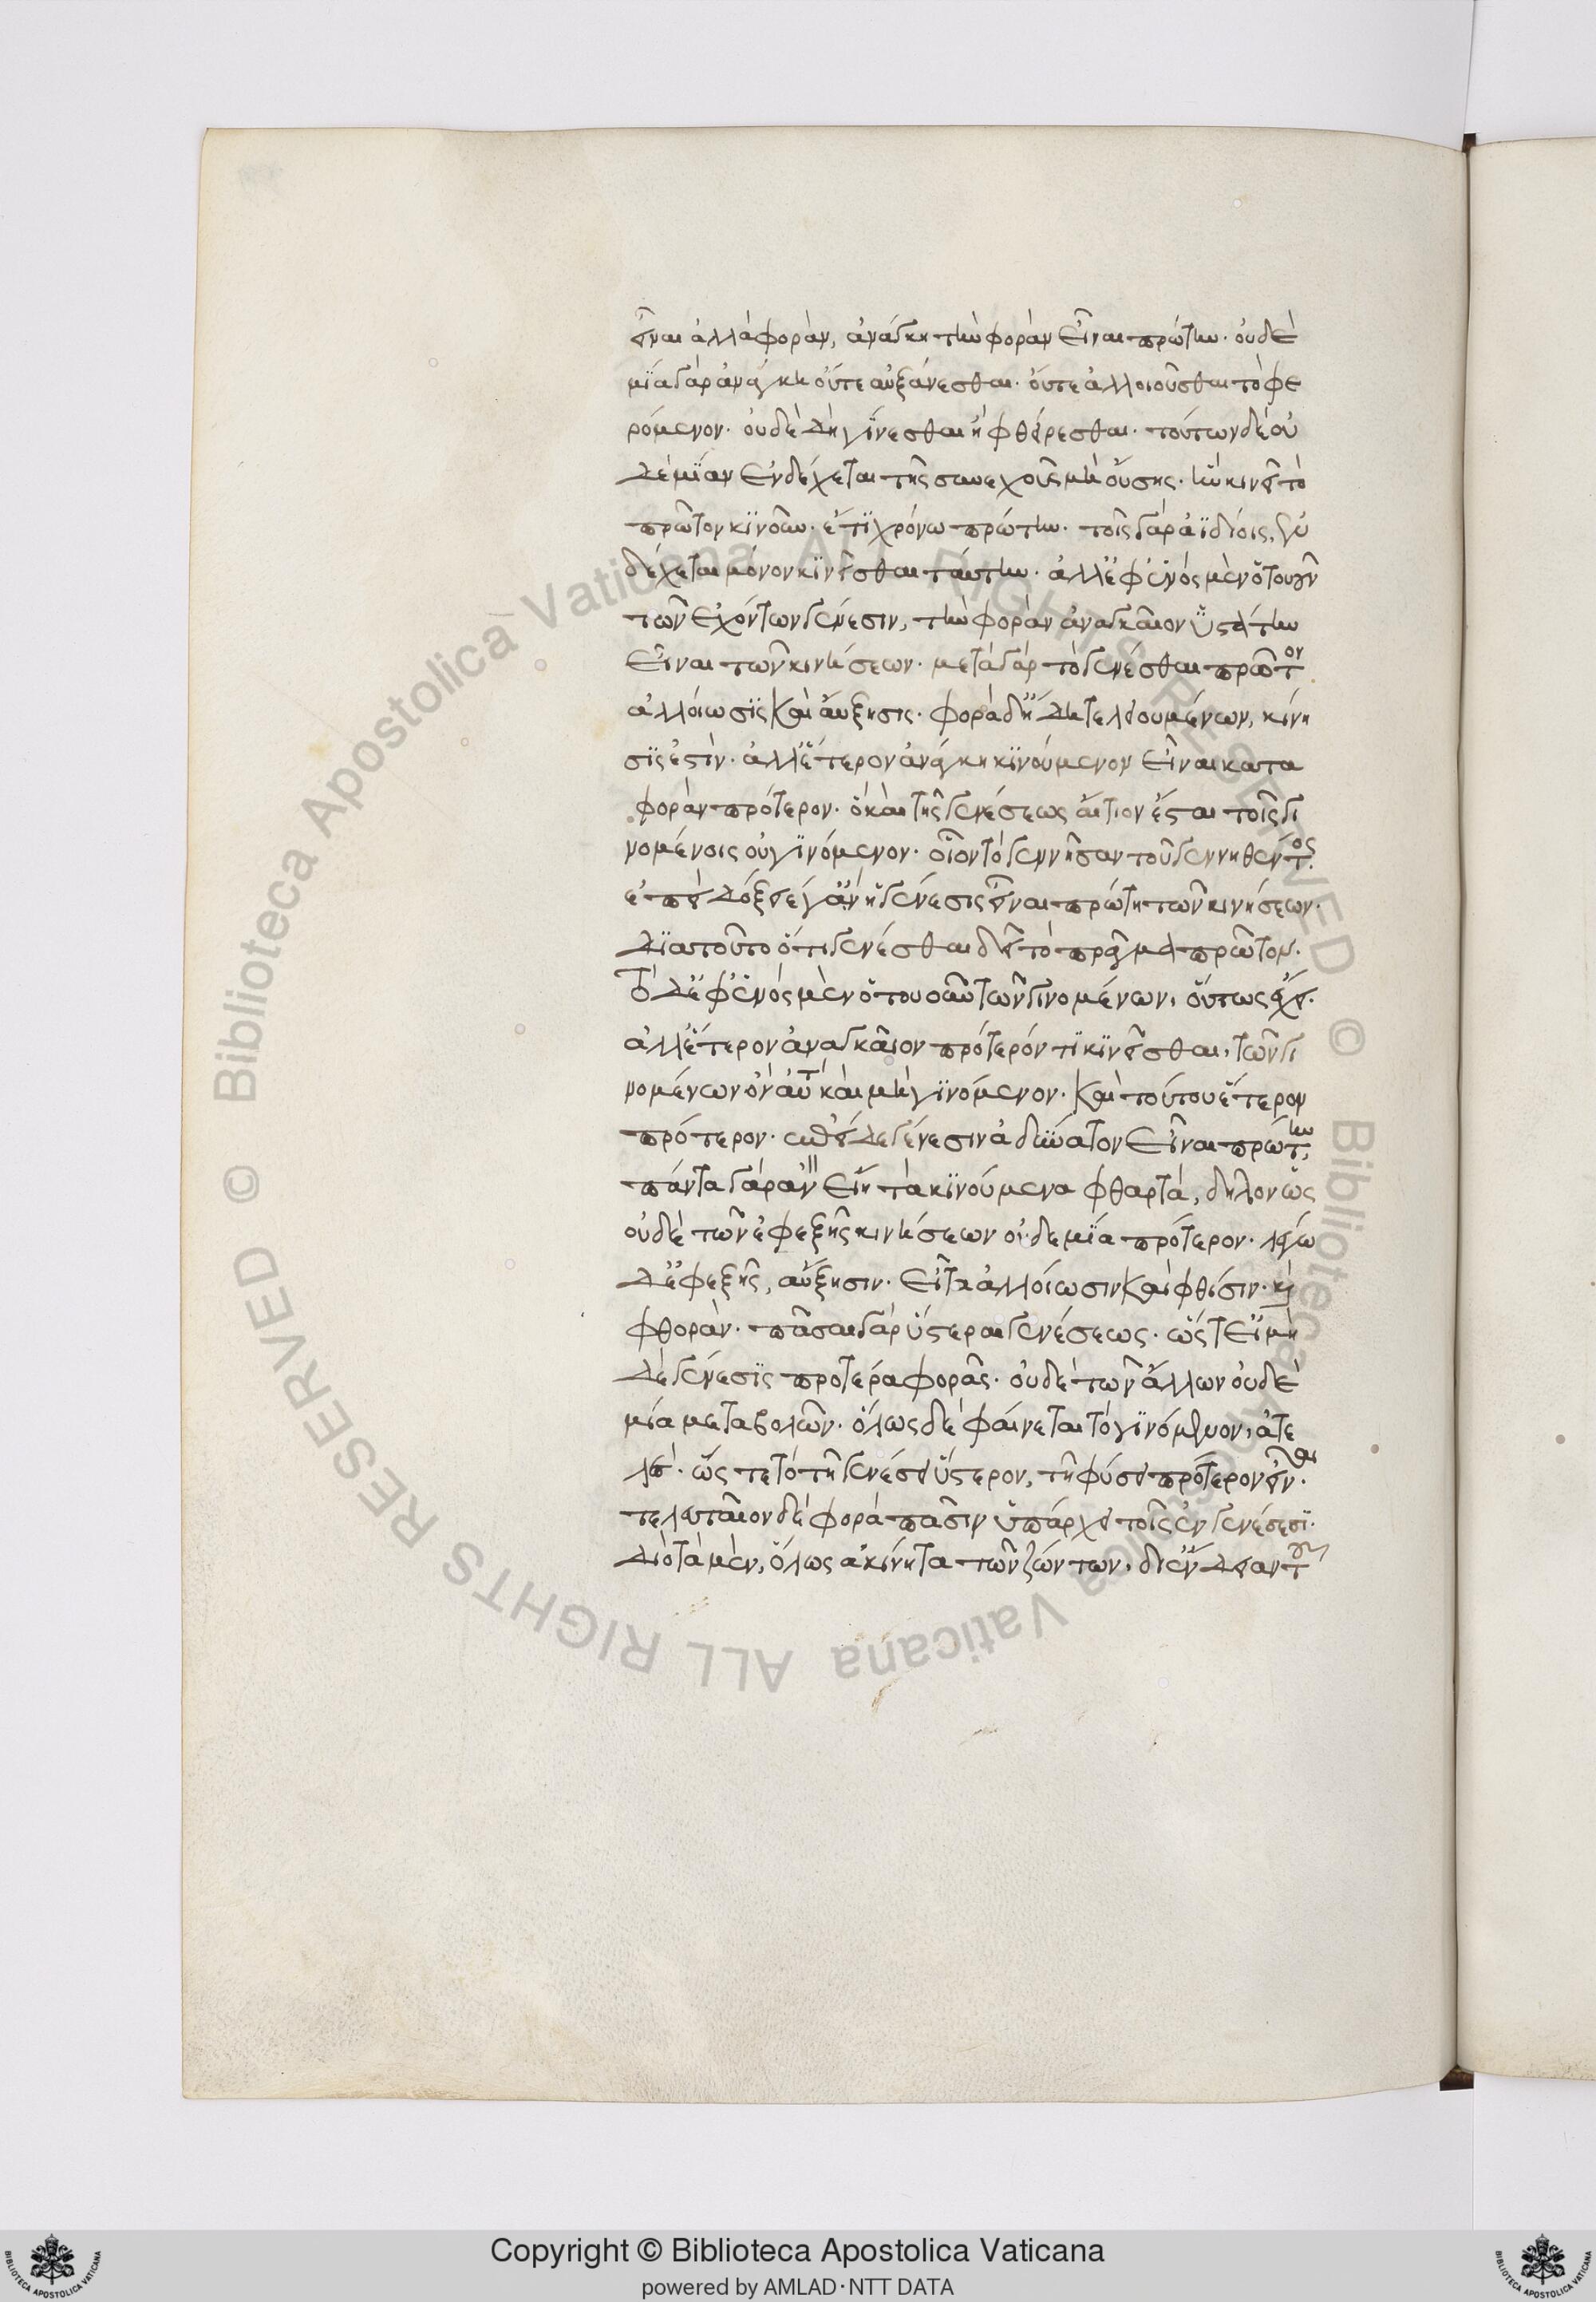 εἶναι ἀλλὰ φορὰν, ἀνάγκη τὴν φορὰν εἶναι πρώτην. οὐδὲ
μΐα γὰρ ἀνάγκη οὔτε αὐξάνεσθαι. οὔτε ἀλλοιοῦσθαι τὸ φε
ρόμενον. οὐδὲ δὴ γΐνεσθαι ἢ φθείρεσθαι. τούτων δὲ οὐ
δεμΐαν ἐνδέχεται τῆς συνεχοῦς μὴ οὔσης. ἣν κινεῖ τὸ
πρῶτον κϊνοῦν. ἔτϊ χρόνω πρώτην. τοῖς γὰρ ἀϊδίοις, ἐν
δέχεται μόνον κϊνεῖσθαι ταύτην. ἀλλ' ἐφ' ἑνὸς μὲν ὁτουοῦν
τῶν ἐχόντων γένεσιν, τὴν φορὰν ἀναγκαῖον ὑστάτην
εἶναι τῶν κινήσεων. μετὰ γὰρ τὸ γενέσθαι πρῶτον
ἀλλοίωσϊς καὶ αὔξησις. φορὰ δ' ἤδη τελειουμένων, κίνη
σϊς ἐστὶν. ἀλλ' ἕτερον ἀνάγκη κϊνούμενον εἶναι κατα
φορὰν πρότερον. ὃ καὶ τῆς γενέσεως αἴτιον ἔσται τοῖς γι
νομένοις οὐ γϊνόμενον. οἷον τὸ γεννῆσαν τοῦ γεννηθέντος.
ἐπεὶ δόξειέ γ' ἂν ἡ γένεσις εἶναι πρώτη τῶν κινήσεων.
δϊατοῦτο ὅτι γενέσθαι δεῖ τὸ πρᾶγμα πρῶτον.
τὸ δ' ἐφ' ἑνὸς μὲν ὁτουοῦν τῶν γινομένων, οὕτως ἔχει.
ἀλλ' ἕτερον ἀναγκαῖον πρότερόν τϊ κϊνεῖσθαι, τῶν γι
νομένων ὂν αὐτὸ καὶ μὴ γϊνόμενον. καὶ τούτου ἕτερον
πρότερον. ἐπεὶ δὲ γένεσιν ἀδύνατον εἶναι πρώτην,
πάντα γὰρ ἂν εἴη τὰ κϊνούμενα φθαρτὰ, δῆλον ὡς
οὐδὲ τῶν ἐφεξῆς κινήσεων οὐδεμΐα πρότερον. λέγω
δ' ἐφεξῆς, αὔξησιν. εἶτα ἀλλοίωσιν καὶ φθίσιν. καὶ
φθορὰν. πᾶσαι γὰρ ὕστεραι γενέσεως. ὥστ' εἰ μη
δὲ γένεσϊς προτέρα φορᾶς. οὐδὲ τῶν ἄλλων οὐδὲ
μία μεταβολῶν. ὅλως δὲ φαίνεται τὸ γϊνόμενον, ἀτε
λὲς. ὥστε τὸ τῆ γενέσει ὕστερον, τῆ φύσει πρότερον εἶναι.
τελευταῖον δὲ φορὰ πᾶσιν ὑπάρχει τοῖς ἐν γενέσεϊ.
διὸ τὰ μὲν, ὅλως ἀκίνητα τῶν ζώντων, δι' ἔνδειαν τοῦ
Copyright © Biblioteca Apostolica Vaticana
powered by AMLAD·NTT DATA